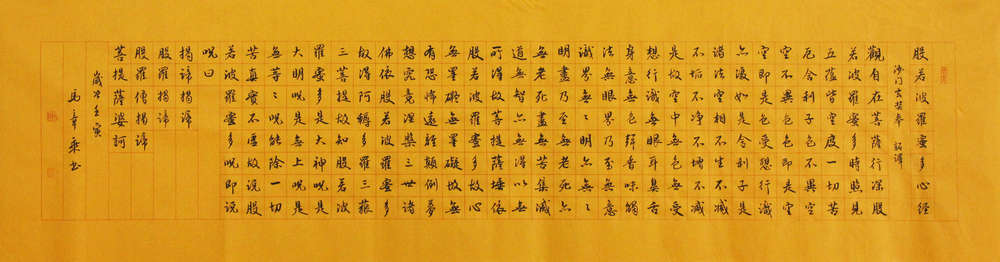 般若波羅蜜多心經
沙门玄奘奉 詔譯
觀自在菩薩行深般
若波羅蜜多時照見
五蕴皆空度一切苦
厄舍利子色不異空
空不異色色即是空
空即是色受想行識
亦復如是舍利子是
諸法空相不生不滅
不垢不净不增不減
是故空中無色無受
想行識無眼耳鼻舌
身意無色聲香味觸
法無眼界乃至無意
識界無無明亦無無
明盡乃至無老死亦
無老死盡無苦集滅
道無智亦無得以無
所得故菩提薩埵依
般若波羅蜜多故心
無罣礙無罣礙故無
有恐怖遠離顛倒夢
想究竟涅槃三世諸
佛依般若波羅蜜多
故得阿耨多羅三藐
三菩提故知般若波
羅蜜多是大神呪是
大明呪是無上呪是
無等々呪能除一切
苦真實不虛故說般
若波羅蜜多呪即說
呪曰
揭諦揭諦
般羅揭諦
般羅僧揭諦
菩提薩婆訶
歲次壬寅
馬章乘書